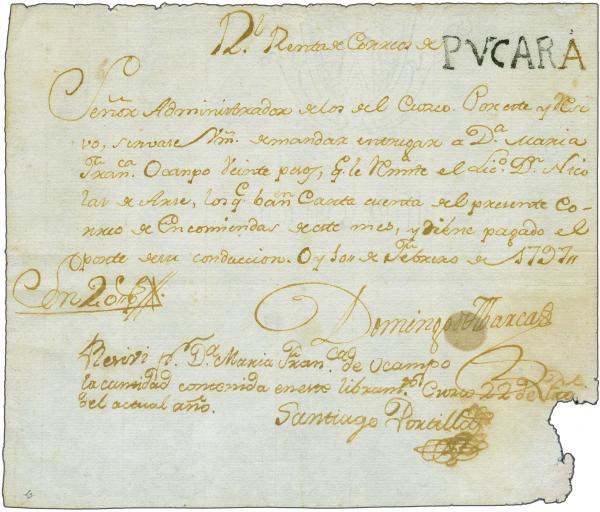 Rl. Renta de Correos de PVCARA
Señor Administrador de los del Cuzco. Por este y Reci-
vo, sirvase Vm. de mandar entregar a Da. Maria
Franca. Ocampo Veinte pesos, q. le Remite el Lido. Dn. Nico
las de Arse, los q. ban en Carta cuenta del presente Co-
rreo de Encomiendas de este mes, y tiene pagado el
porte de su conduccion. Oy 1o de Febrero de 1797
Son 20 ps.
Domingo de Marcas
Reciví pr. Da. Maria Francca. de Ocampo
la cantidad contenida en este libramto. Cuzco 22 de
del actual año.
Santiago Portilla